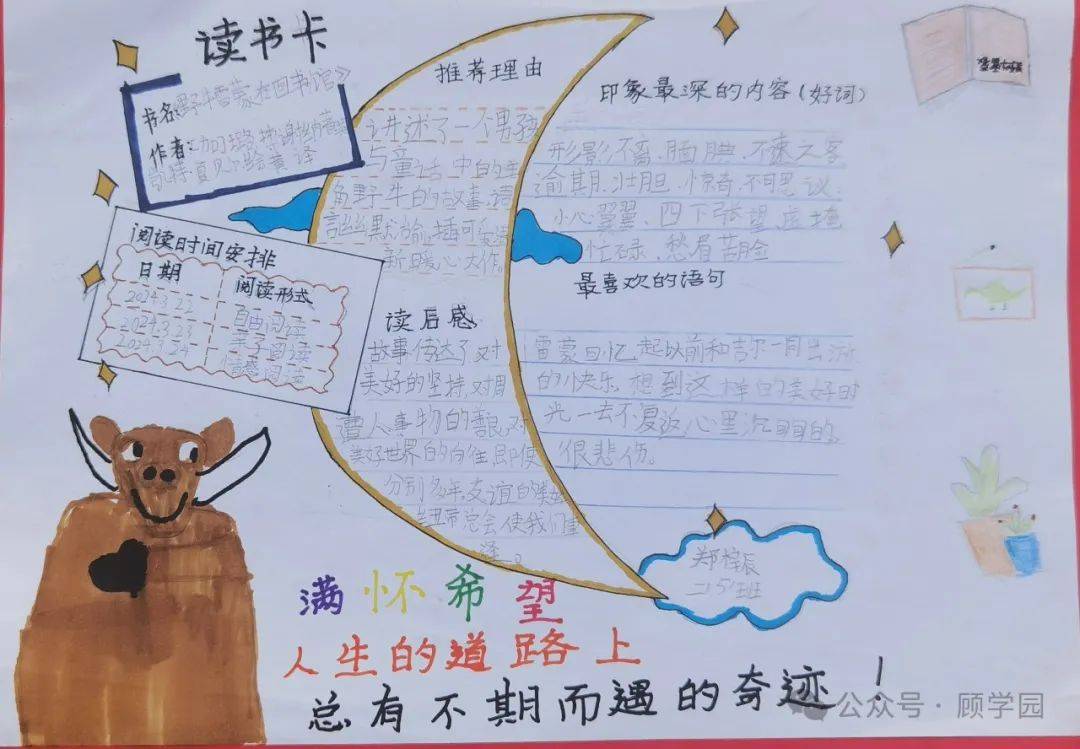 读书卡
书名:野牛雷蒙在图书馆》
作者:
夏贝尔 绘 黄 译
阅读时间安排
日期 阅读形式
2024.3.22 自由阅读
2024.3.23 亲子阅读
2024.3.24 情感阅读
推荐理由
讲述了一个男孩
与童话中的主
角野牛的故事,语
言幽默
新暖心大作。
读后感
故事传达了对
美好的坚持,对周
遭人事物的善良,对
美好世界的向往,即使
分别多年,友谊的美好
纽带总会使我们重
逢。
印象最深的内容(好词)
形影不离、腼腆、不速之客
逾期、壮胆、惊奇、不可思议、
小心翼翼、四下张望、虚掩
忙碌、愁眉苦脸
最喜欢的语句
雷蒙回忆起以前和吉尔一同出游
的小快乐,想到这样的美好时
光一去不复返,心里沉甸甸的
很悲伤。
二(5)班
满怀希望
人生的道路上
总有不期而遇的奇迹!
公众号·顾学园